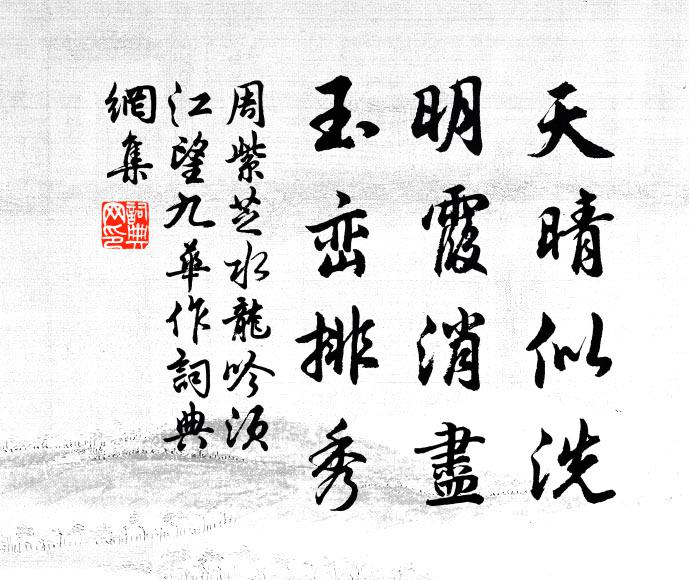 天晴似洗
明霞消盡
玉峦排秀
周紫芝水龍吟须
江望九華作詞典
網集
詞典
网印